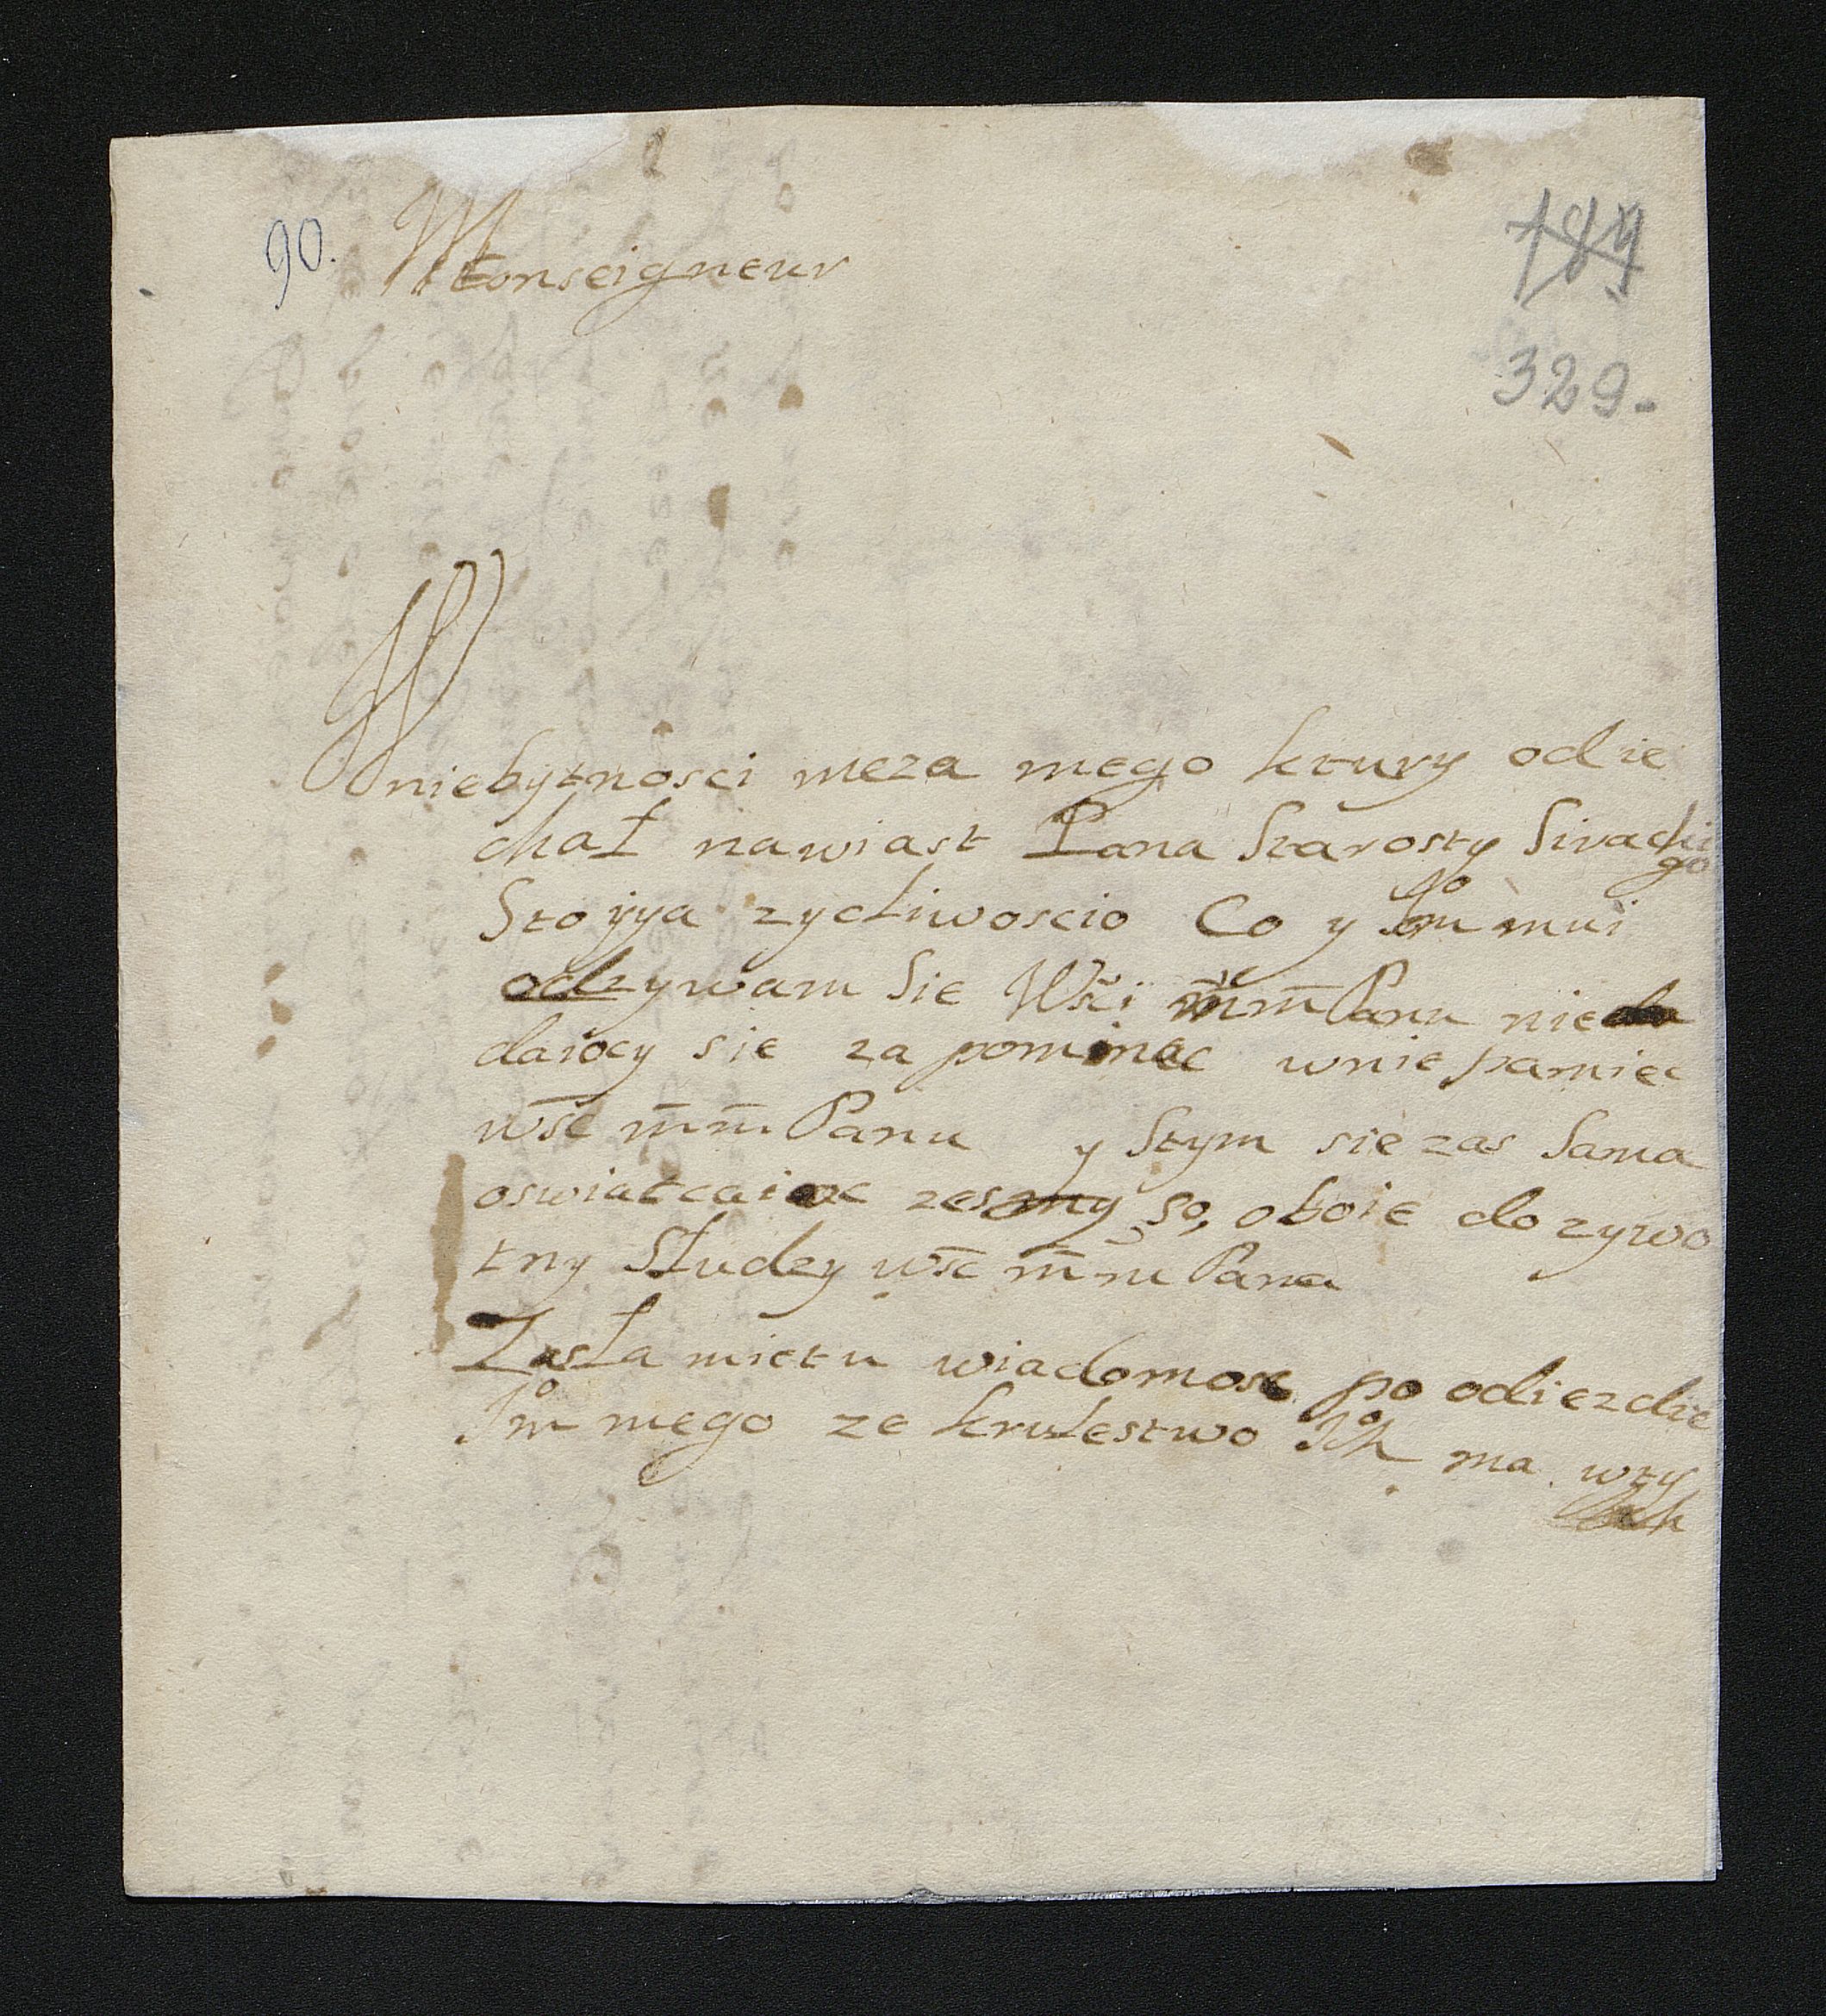 90. Monseigneur
189
329.
W niebytnosci meza mego ktury odie
chał nawiast Pana Starosty Siradzki
go
Sto yya zycliwoscio Co y Jm mui
odzywam Sie Wsci m̃m̃ Panu nie
daiocy sie za pominac wnie pamiec
wsc m̃m̃ Panu y Stym sie zas Sama
oswiatcaioc zesmy so, oboie do zywo
tny Słudzy wsc m̃m Pana
Zasła mietu wiadomosc po odiezdie
Jm mego ze krulestwo Ich ma wty